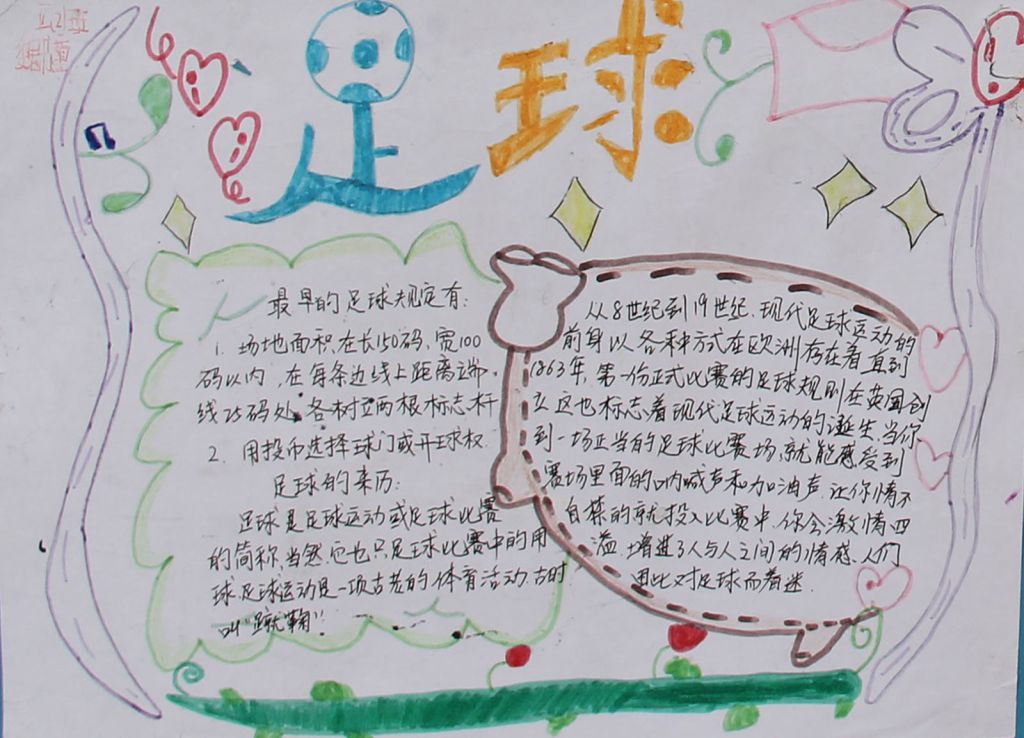 足球
最早的足球规定有:
1. 场地面积在长150码,宽100
码以内,在每条边线上距离端
线25码处,各树立两根标志杆
2. 用投币选择球门或开球权.
足球的来历:
足球是足球运动或足球比赛
的简称,当然,它也只足球比赛中的用
球.足球运动是一项古老的体育活动,古时
叫“蹴鞠”
从8世纪到19世纪,现代足球运动的
前身以各种方式在欧洲存在着直到
1863年,第一份正式比赛的足球规则在英国创
立,这也标志着现代足球运动的诞生.当你
到一场正当的足球比赛场,就能感受到
赛场里面的呐喊声和加油声.让你情不
自禁的就投入比赛中.你会激情四
溢,增进了人与人之间的情感.人们
因此对足球而着迷.